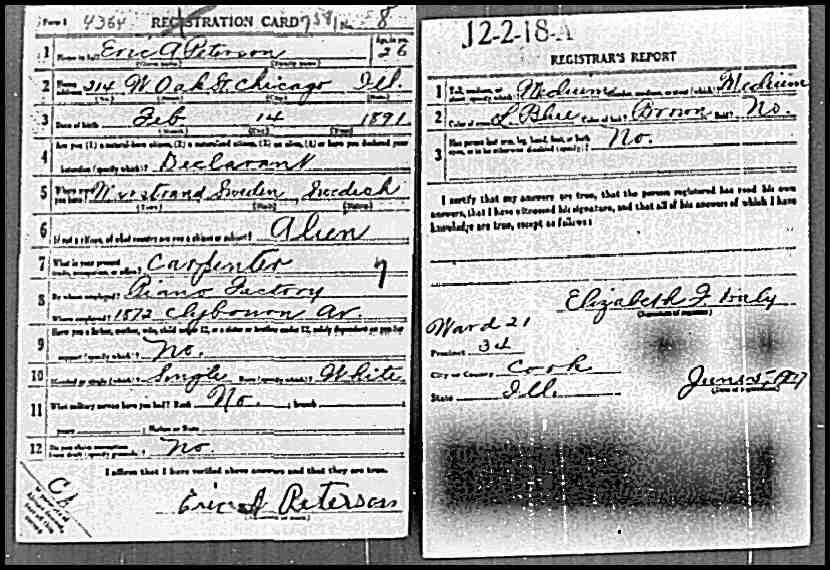 Form 1 4364 REGISTRATION CARD No. 8
1 Name in full Eric A Peterson Age, in yrs. 26
(Given name) (Family name)
2 Home address 214 W Oak St. Chicago Ill.
(No.) (Street) (City) (State)
3 Date of birth Feb 14 1891
(Month) (Day) (Year)
Are you (1) a natural-born citizen, (2) a naturalized citizen, (3) an alien, (4) or have you declared your
4 intention (specify which)? Declarant
5 Where were you born? Sweden Swedish
(Town) (State) (Nation)
6 If not a citizen, of what country are you a citizen or subject? Alien
7 What is your present trade, occupation, or office? Carpenter 7
8 By whom employed? Piano Factory
Where employed? 1872 Clybourn Av.
9 Have you a father, mother, wife, child under 12, or a sister or brother under 12, solely dependent on you for
support (specify which)? No.
10 Married or single (which)? Single Race (specify which)? White
11 What military service have you had? Rank No. ; branch
years ; Nation or State
12 Do you claim exemption from draft (specify grounds)? No.
I affirm that I have verified above answers and that they are true.
Eric A Peterson
12-2-18-A
REGISTRAR'S REPORT
1 Tall, medium, or short (specify which)? Medium Slender, medium, or stout (which)? Medium
2 Color of eyes? L Blue Color of hair? Brown Bald? No.
3 Has person lost arm, leg, hand, foot, or both eyes, or is he otherwise disabled (specify)? No.
I certify that my answers are true, that the person registered has read his own
answers, that I have witnessed his signature, and that all of his answers of which I have
knowledge are true, except as follows:
Elizabeth F. Daly
(Signature of registrar)
Ward 21
Precinct 34
City or County Cook
State Ill.
June 5, 1917
(Date of registration)